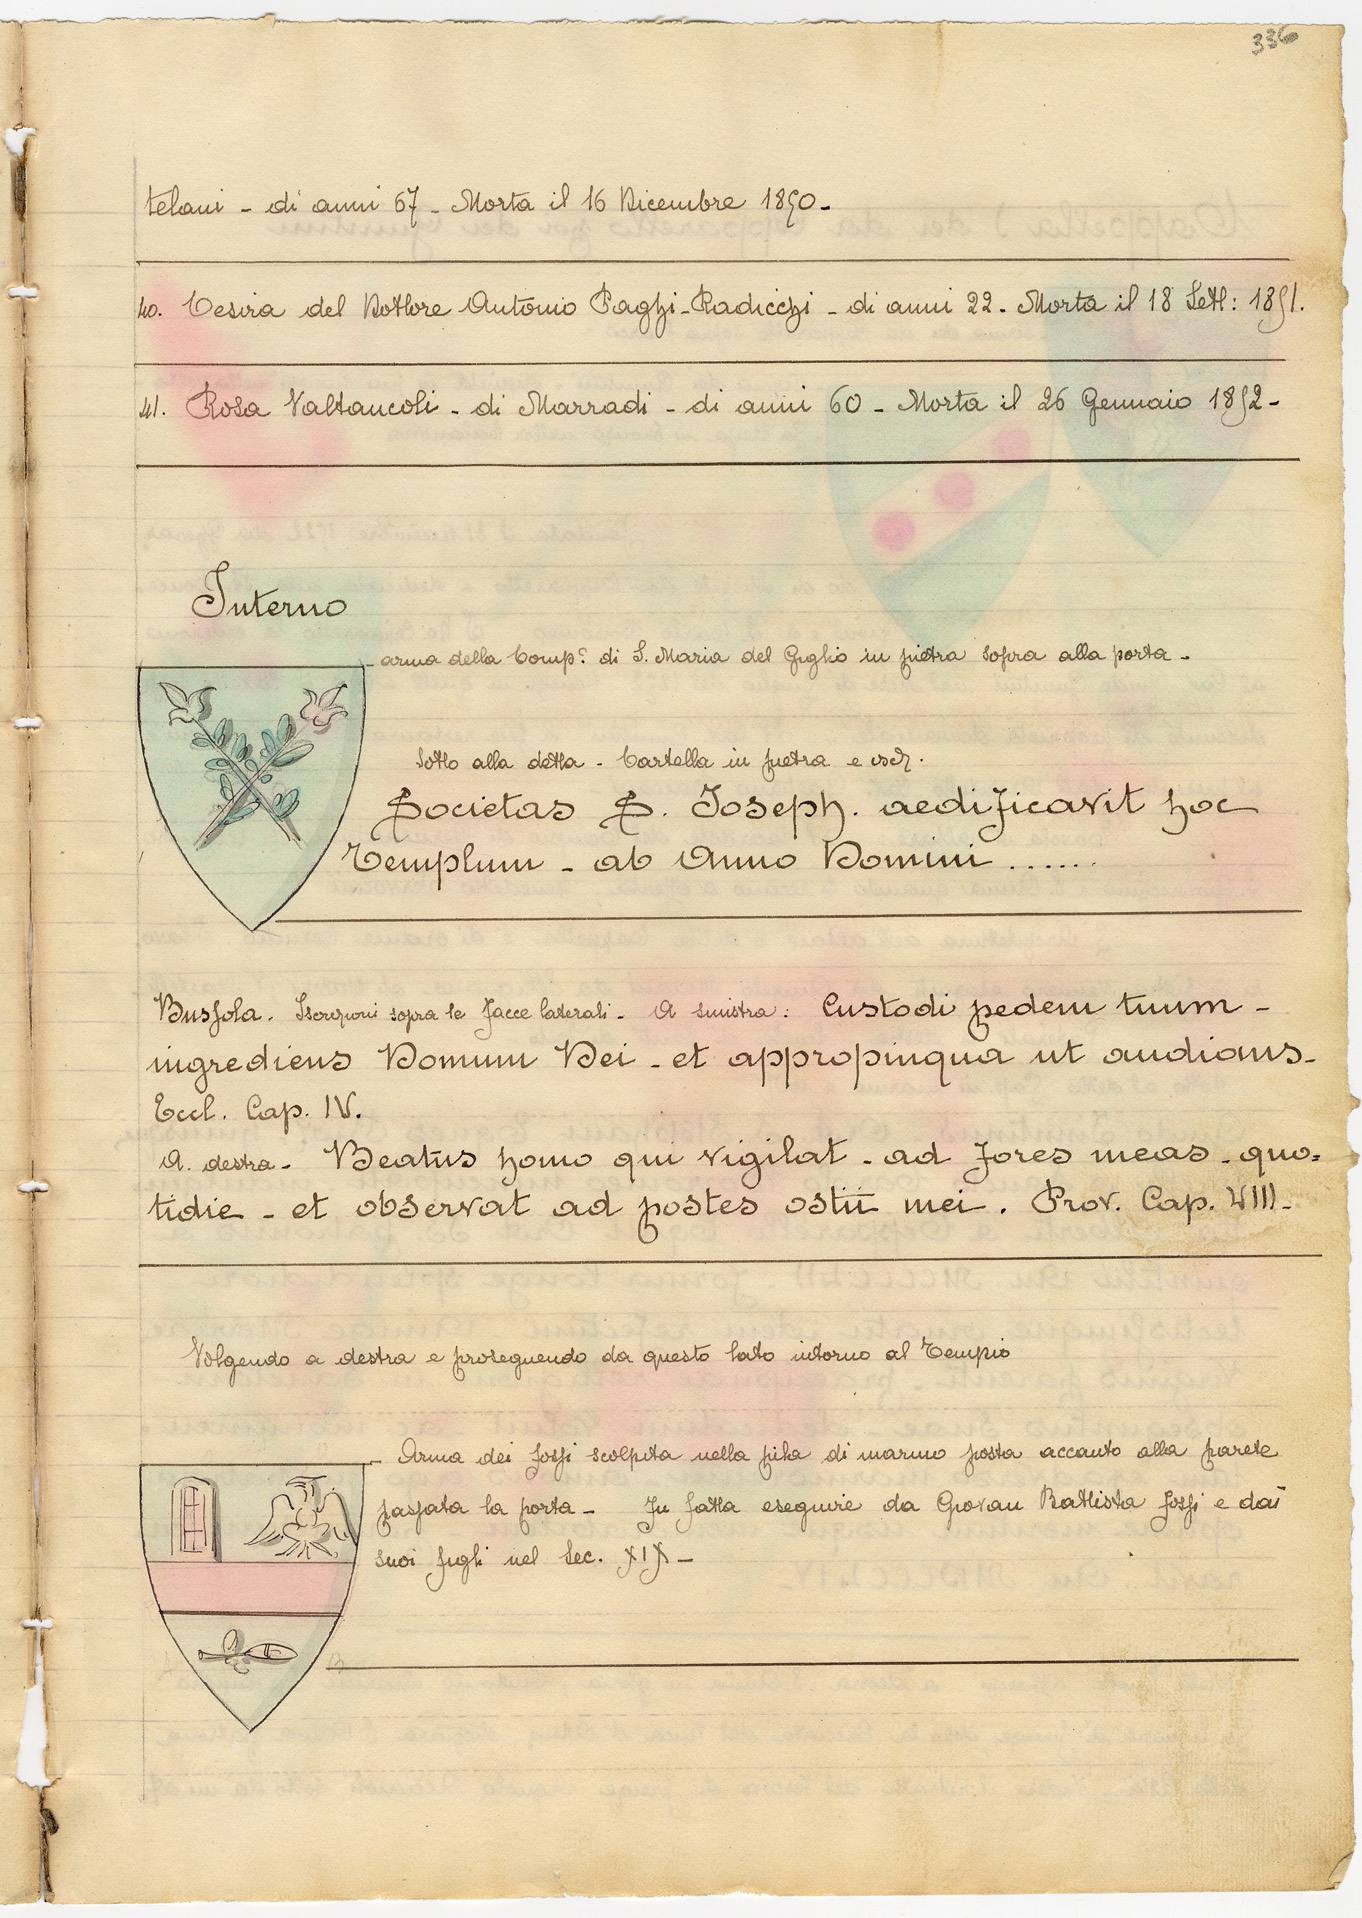 336
telani - di anni 67 - Morta il 16 Dicembre 1850 -
40. Cesira del Dottore Antonio Faghi-Radicchi - di anni 22 - Morta il 18 Sett: 1851.
41. Rosa Valtancoli - di Marradi - di anni 60 - Morta il 26 Gennaio 1852 -
Interno
- arma della Comp.ª di S. Maria del Giglio in pietra sopra alla porta -
Sotto alla detta - Cartella in pietra e iscr.
Societas S. Joseph. aedificavit hoc
Templum - ab Anno Domini ......
Bussola. Iscrizioni sopra le facce laterali - A sinistra: Custodi pedem tuum -
ingrediens Domum Dei - et appropinqua ut audians -
Eccl. Cap. IV.
A destra - Beatus homo qui vigilat - ad fores meas - quo=
tidie - et observat ad postes ostii mei. Prov. Cap. VIII -
Volgendo a destra e proseguendo da questo lato intorno al Tempio
- Arma dei Fossi scolpita nella pila di marmo posta accanto alla parete
passata la porta - Fu fatta eseguire da Giovan Battista Fossi e dai
suoi figli nel Sec. XIX -